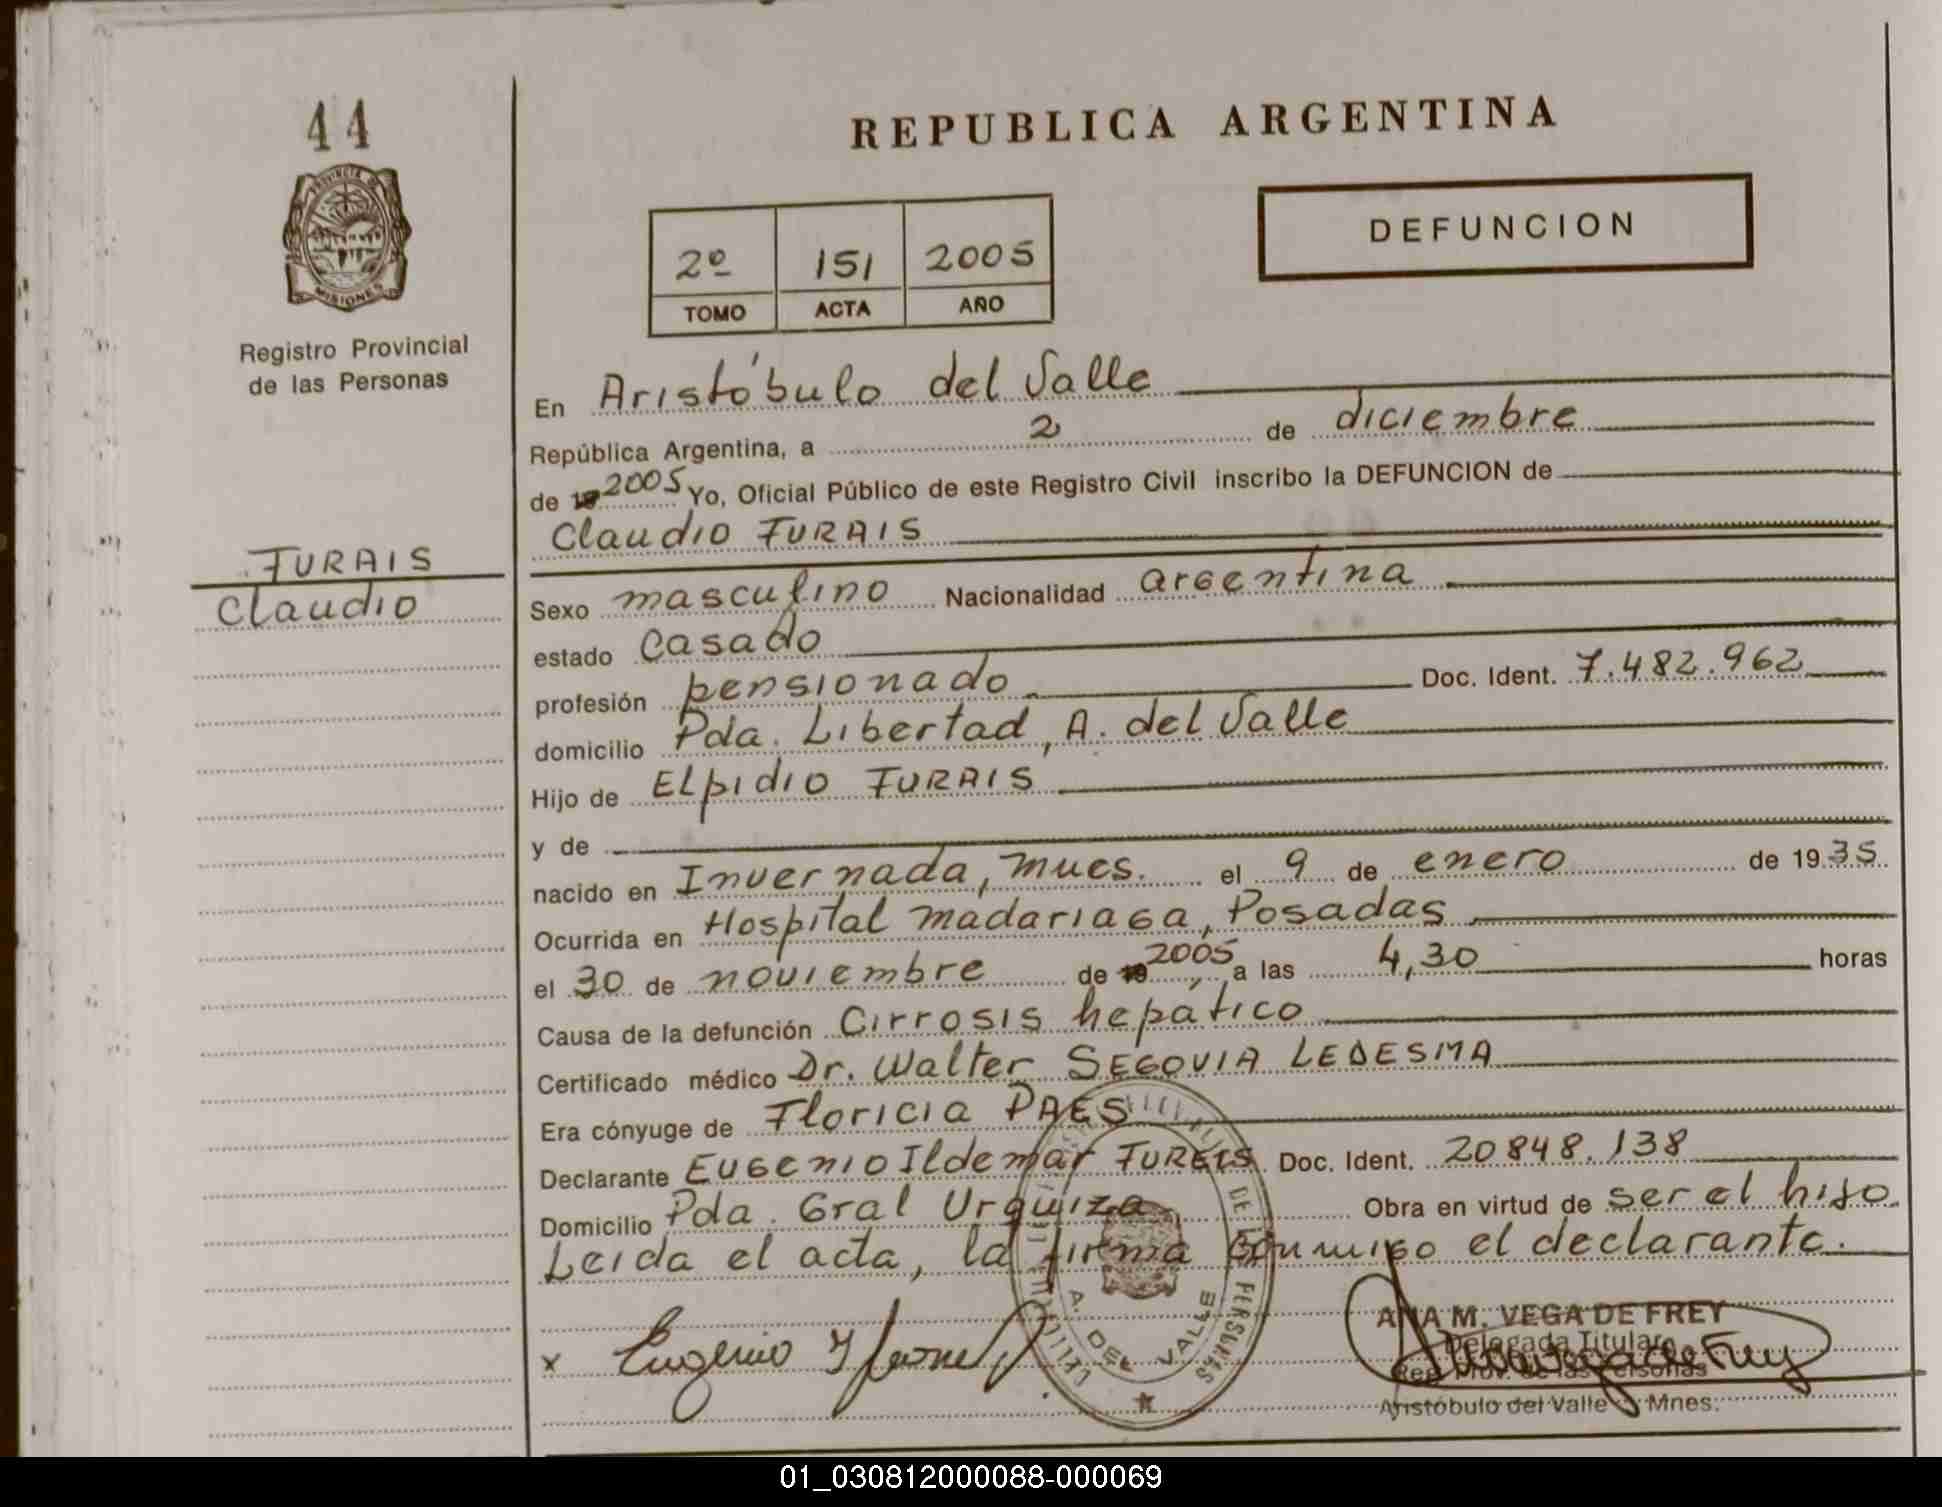 44
REPUBLICA ARGENTINA
PROVINCIA DE
MISIONES
2º 151 2005
TOMO ACTA AÑO
DEFUNCION
Registro Provincial
de las Personas
En Aristóbulo del Valle
República Argentina, a 2 de diciembre
de 19 2005 Yo, Oficial Público de este Registro Civil inscribo la DEFUNCION de
Claudio FURAIS
FURAIS
Claudio
Sexo masculino Nacionalidad argentina
estado casado
profesión pensionado Doc. Ident. 7.482.962
domicilio Pda. Libertad, A. del Valle
Hijo de Elpidio FURAIS
y de
nacido en Invernada, Mnes. el 9 de enero de 1935
Ocurrida en Hospital Madariaga, Posadas
el 30 de noviembre de 19 2005, a las 4,30 horas
Causa de la defunción Cirrosis hepatico
Certificado médico Dr. Walter SEGOVIA LEDESMA
Era cónyuge de Floricia PAES
Declarante Eugenio Ildemar FUREIS Doc. Ident. 20848.138
Domicilio Pda. Gral Urquiza Obra en virtud de ser el hijo.
Leida el acta, la firma conmigo el declarante.
A. DEL VALLE
x Eugenio I
ANA M. VEGA DE FREY
Delegada Titular
Reg. Prov. de las Personas
Aristóbulo del Valle - Mnes.
01_030812000088-000069